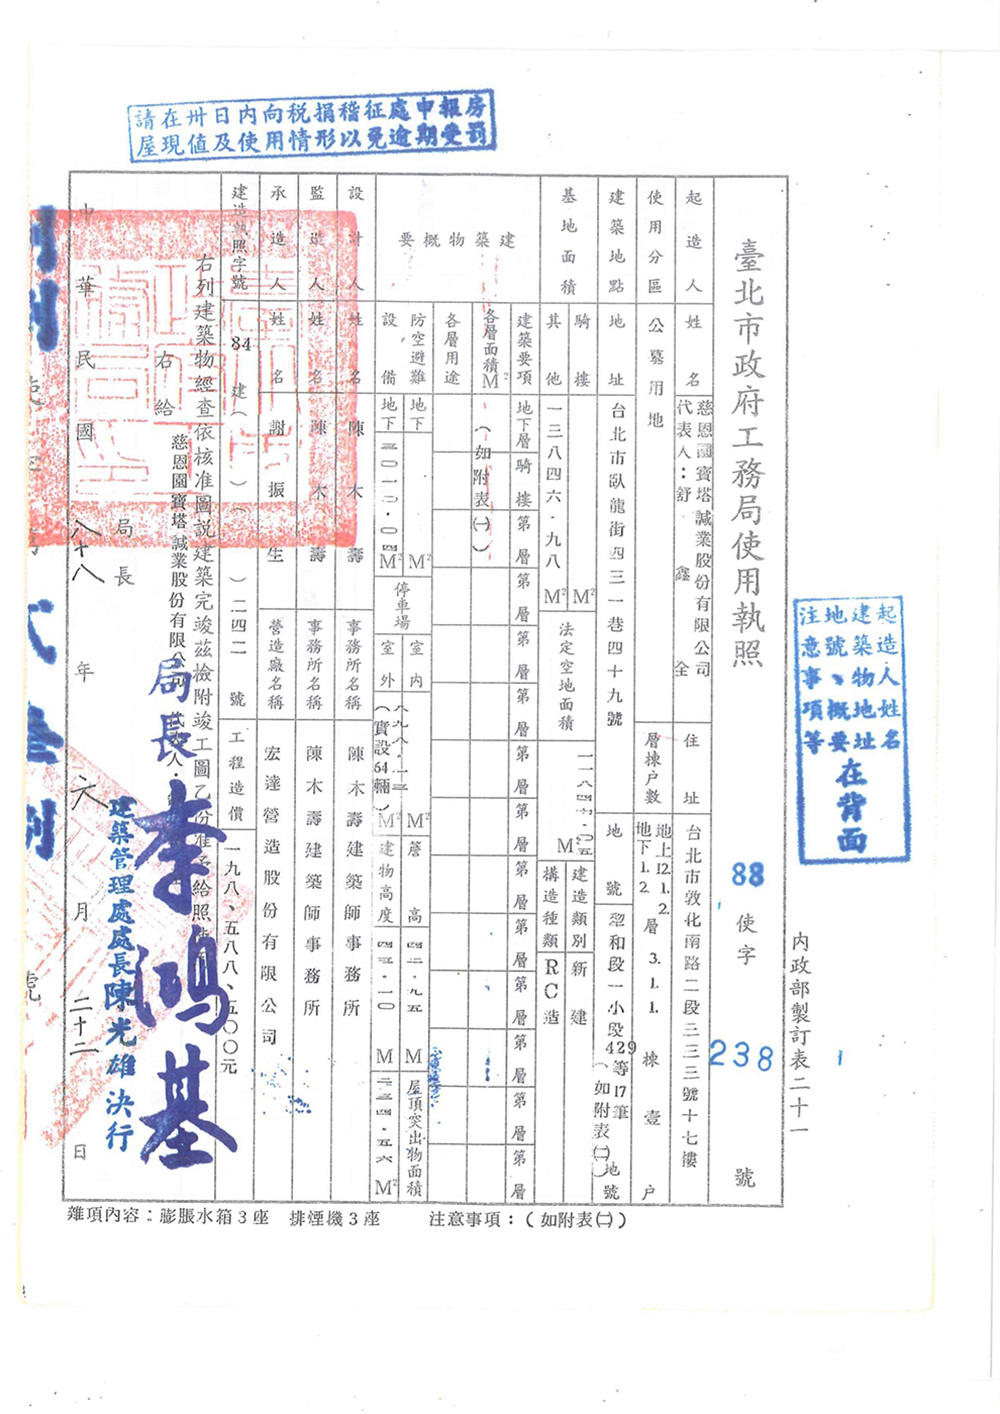 請在卅日內向稅捐稽征處申報房
屋現値及使用情形以免逾期受罰
內政部製訂表二十一
起造人姓名
建築物地址
地號、概要
注意事項等
在背面
臺北市政府工務局使用執照
88
使字
238
號
起造人
姓名
慈恩園寶塔誠業股份有限公司
代表人：舒鑫全
住址
台北市敦化南路二段三三三號十七樓
使用分區
公墓用地
層棟戶數
地上12.1.2.
地下1.2
層
3.1.1.
棟
壹
戶
建築地點
地址
台北市臥龍街四三一巷四十九號
地號
犂和段一小段429等17筆(如附表㈡)地號
基地面積
騎樓
M²
其他
一三八四六·九八
M²
法定空地面積
M²
建造類別
新建
構造種類
RC造
建築物概要
建築要項
地下層
騎樓
第層
第層
第層
第層
第層
第層
第層
第層
第層
第層
第層
第層
各層面積M²
(如附表㈠)
各層用途
防空避難
設備
地下
M²
地下
M²
停車場
室內
M²
室外
(實設64輛)
M²
簷高
四二·九五
M
建物高度
四三·一〇
M
屋頂突出物面積
二三四·五六
M²
設計人
姓名
陳木壽
事務所名稱
陳木壽建築師事務所
監造人
姓名
陳木壽
事務所名稱
陳木壽建築師事務所
承造人
姓名
謝振生
營造廠名稱
宏達營造股份有限公司
建造執照字號
84
建( )( )二四二號
工程造價
一九八、五八八、五〇〇元
右列建築物經查依核准圖說建築完竣茲檢附竣工圖乙份准予給照
右給
慈恩園寶塔誠業股份有限公司
局長
局長李鴻基
建築管理處處長陳光雄決行
中華民國八十八年六月二十二日
號
雜項內容：膨脹水箱3座 排煙機3座 注意事項：(如附表㈡)